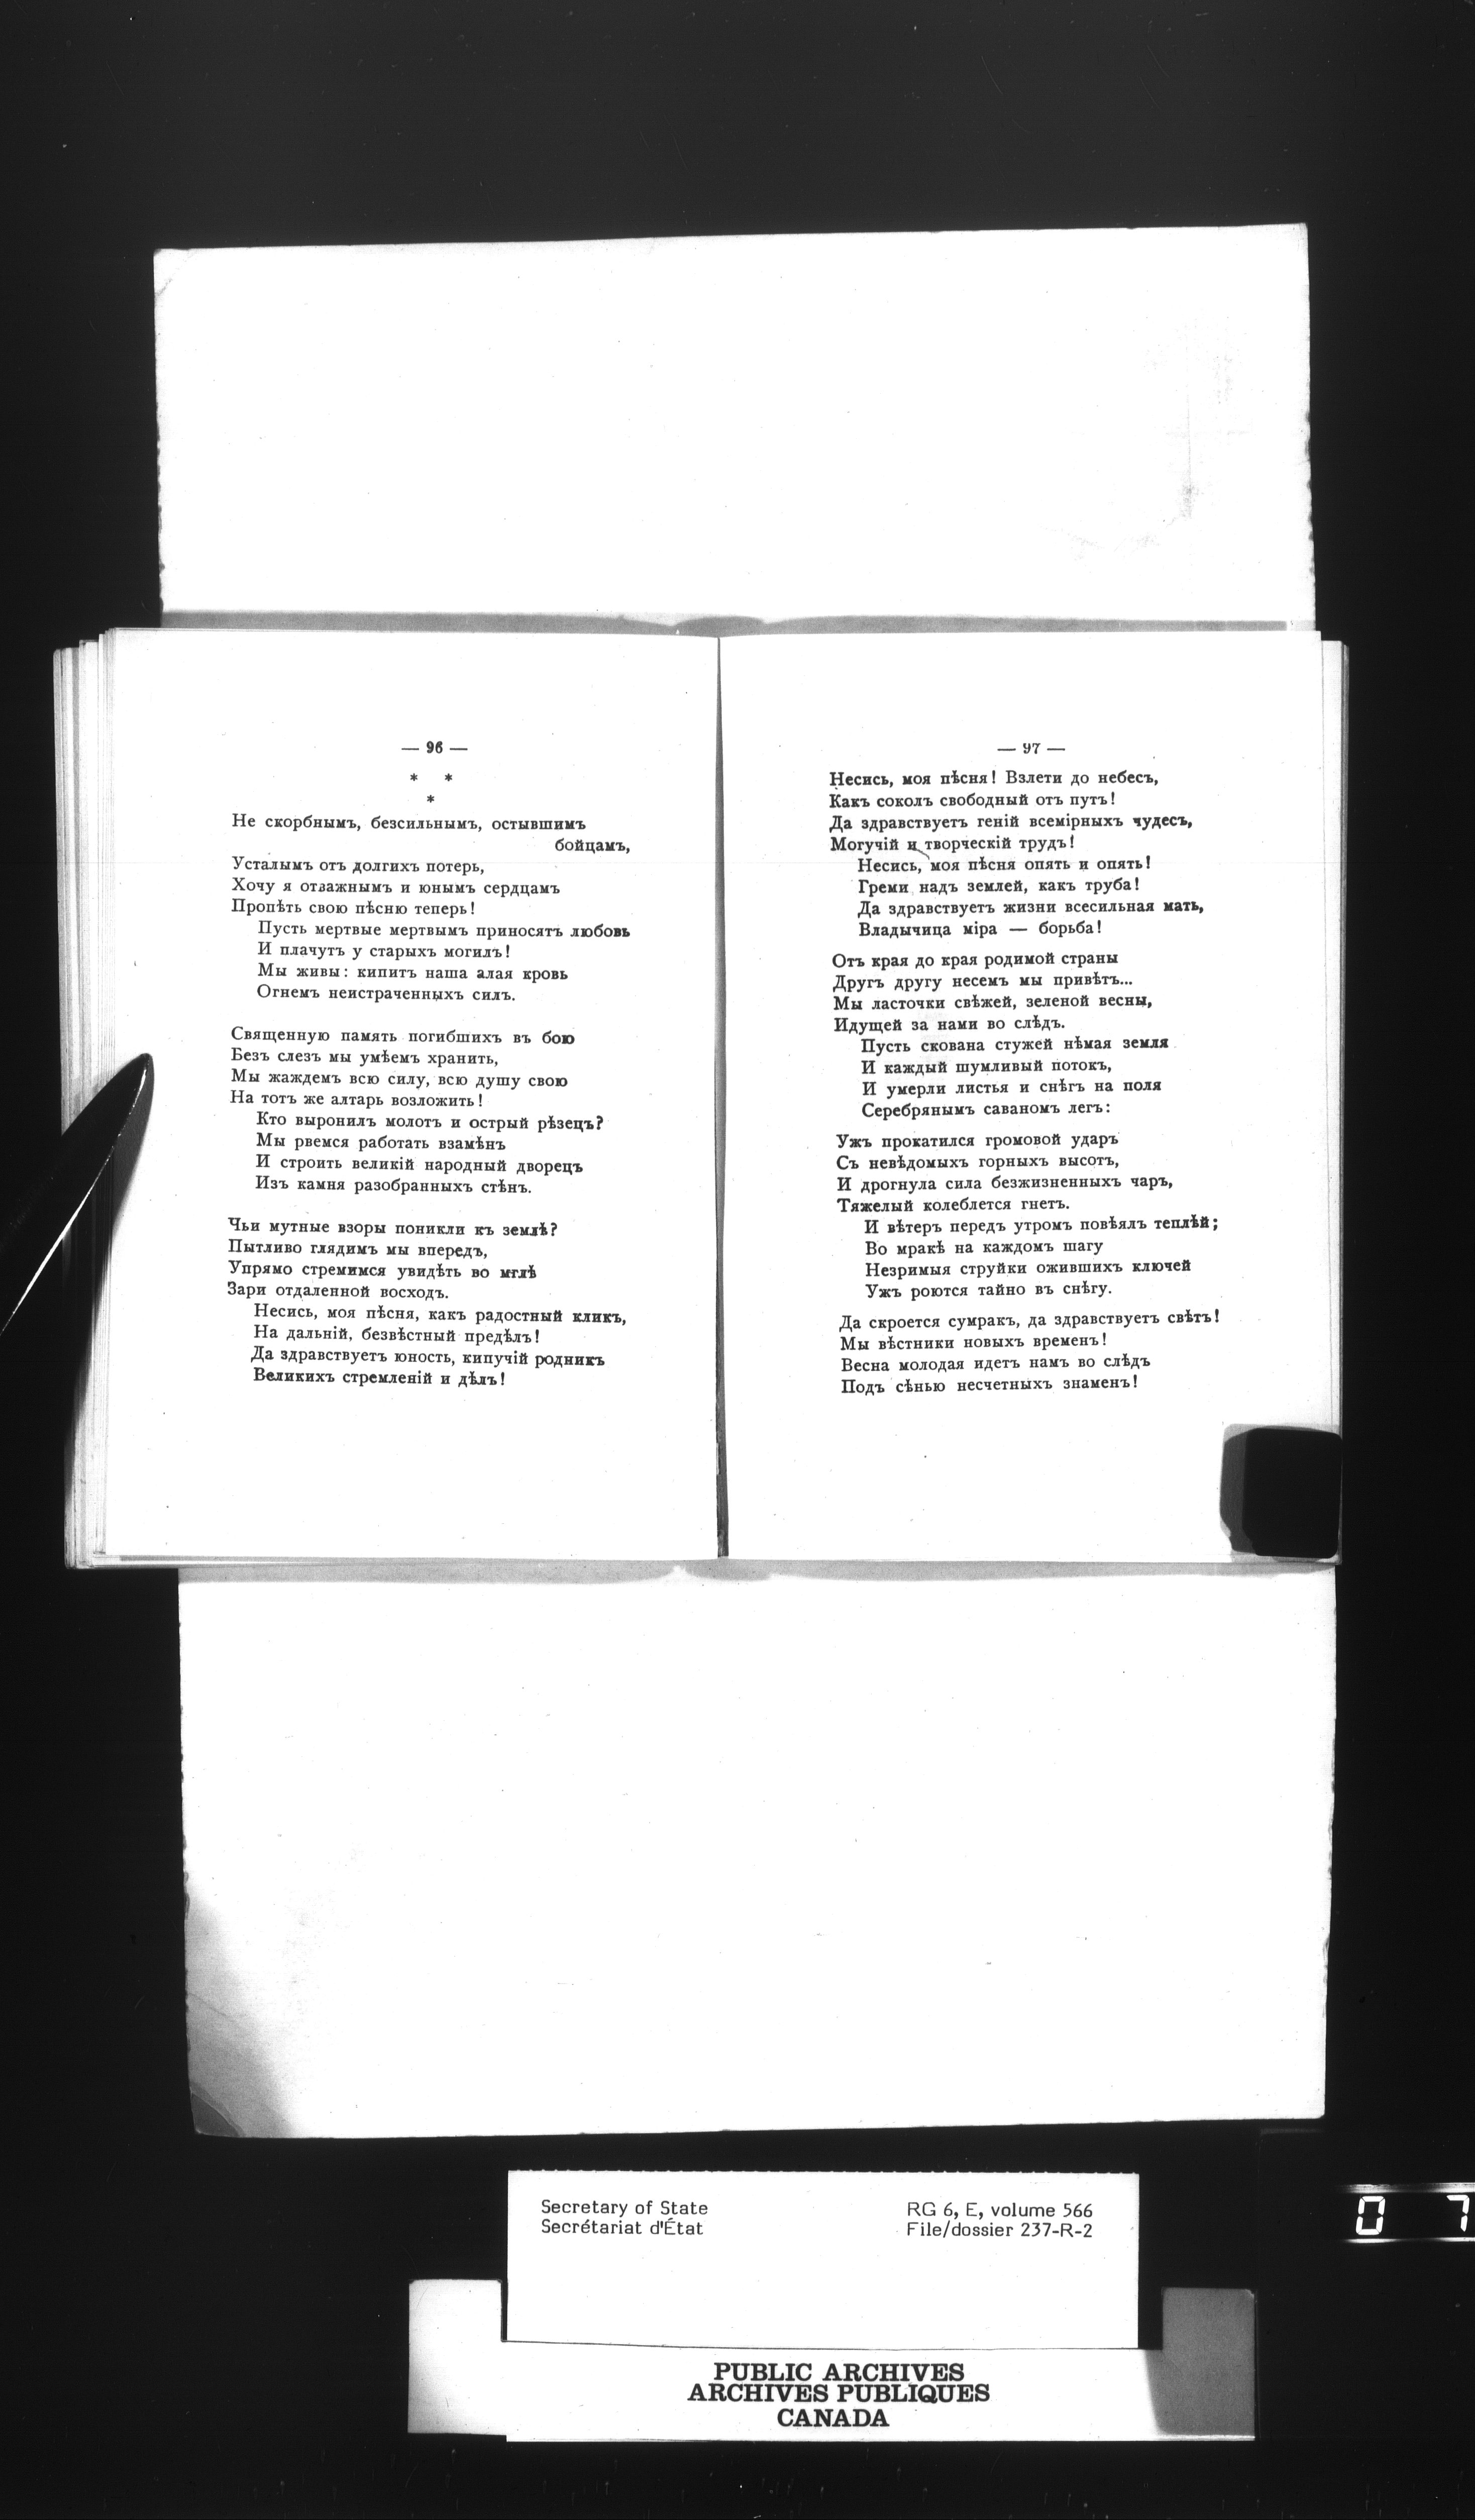 — 96 —
* *
*
Не скорбнымъ, безсильнымъ, остывшимъ
бойцамъ,
Усталымъ отъ долгихъ потерь,
Хочу я отважнымъ и юнымъ сердцамъ
Пропѣть свою пѣсню теперь!
Пусть мертвые мертвымъ приносятъ любовь
И плачутъ у старыхъ могилъ!
Мы живы: кипитъ наша алая кровь
Огнемъ неистраченныхъ силъ.
Священную память погибшихъ въ бою
Безъ слезъ мы умѣемъ хранить,
Мы жаждемъ всю силу, всю душу свою
На тотъ же алтарь возложить!
Кто выронилъ молотъ и острый рѣзецъ?
Мы рвемся работать взамѣнъ
И строить великій народный дворецъ
Изъ камня разобранныхъ стѣнъ.
Чьи мутные взоры поникли къ землѣ?
Пытливо глядимъ мы впередъ,
Упрямо стремимся увидѣть во мглѣ
Зари отдаленной восходъ.
Несись, моя пѣсня, какъ радостный кликъ,
На дальній, безвѣстный предѣлъ!
Да здравствуетъ юность, кипучій родникъ
Великихъ стремленій и дѣлъ!
— 97 —
Несись, моя пѣсня! Взлети до небесъ,
Какъ соколъ свободный отъ путъ!
Да здравствуетъ геній всемірныхъ чудесъ,
Могучій и творческій трудъ!
Несись, моя пѣсня опять и опять!
Греми надъ землей, какъ труба!
Да здравствуетъ жизни всесильная мать,
Владычица міра — борьба!
Отъ края до края родимой страны
Другъ другу несемъ мы привѣтъ...
Мы ласточки свѣжей, зеленой весны,
Идущей за нами во слѣдъ.
Пусть скована стужей нѣмая земля
И каждый шумливый потокъ,
И умерли листья и снѣгъ на поля
Серебрянымъ саваномъ легъ:
Ужъ прокатился громовой ударъ
Съ невѣдомыхъ горныхъ высотъ,
И дрогнула сила безжизненныхъ чаръ,
Тяжелый колеблется гнетъ.
И вѣтеръ передъ утромъ повѣялъ теплѣй;
Во мракѣ на каждомъ шагу
Незримыя струйки ожившихъ ключей
Ужъ роются тайно въ снѣгу.
Да скроется сумракъ, да здравствуетъ свѣтъ!
Мы вѣстники новыхъ временъ!
Весна молодая идетъ намъ во слѣдъ
Подъ сѣнью несчетныхъ знаменъ!
Secretary of State
Secrétariat d'État
RG 6, E, volume 566
File/dossier 237-R-2
0 7
PUBLIC ARCHIVES
ARCHIVES PUBLIQUES
CANADA